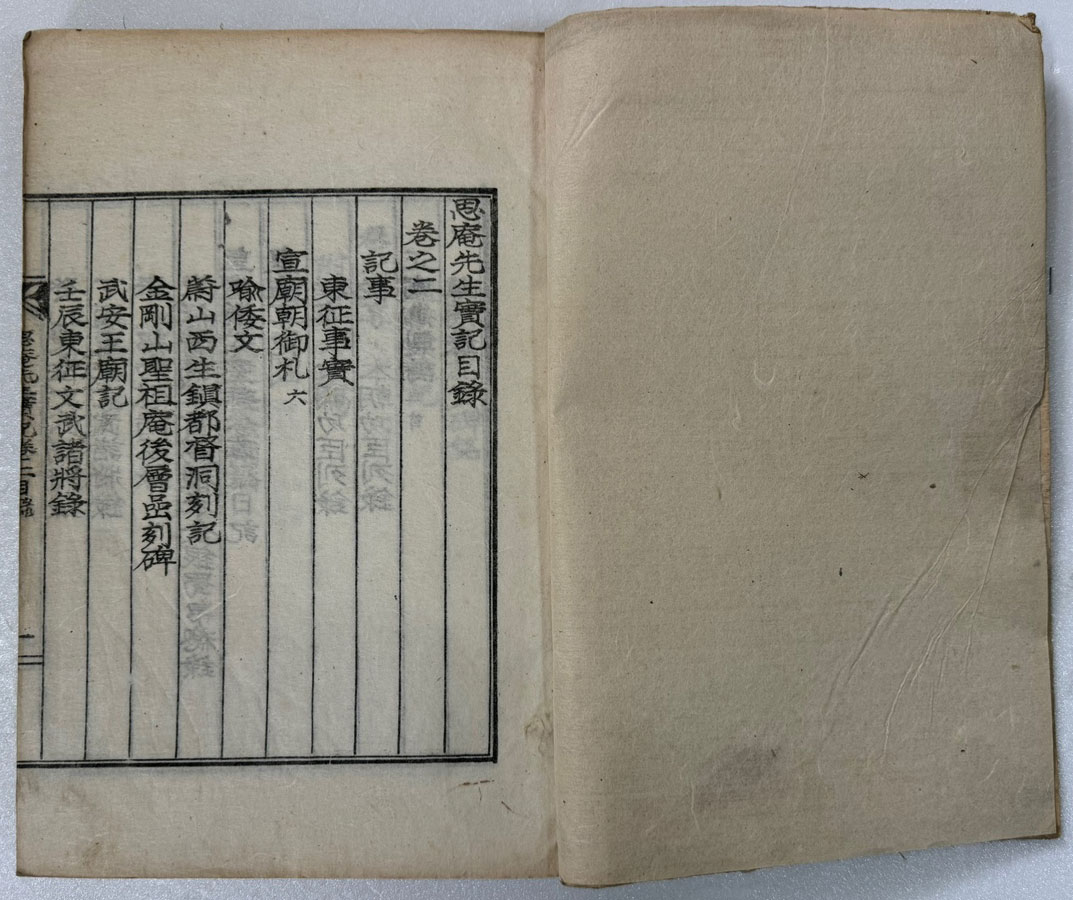 思庵先生實記目錄
卷之二
記事
東征事實
宣廟朝御札 六
喩倭文
蔚山西生鎭都督洞刻記
金剛山聖祖庵後層嵒刻碑
武安王廟記
壬辰東征文武諸將錄
思庵先生實記卷二目錄
一